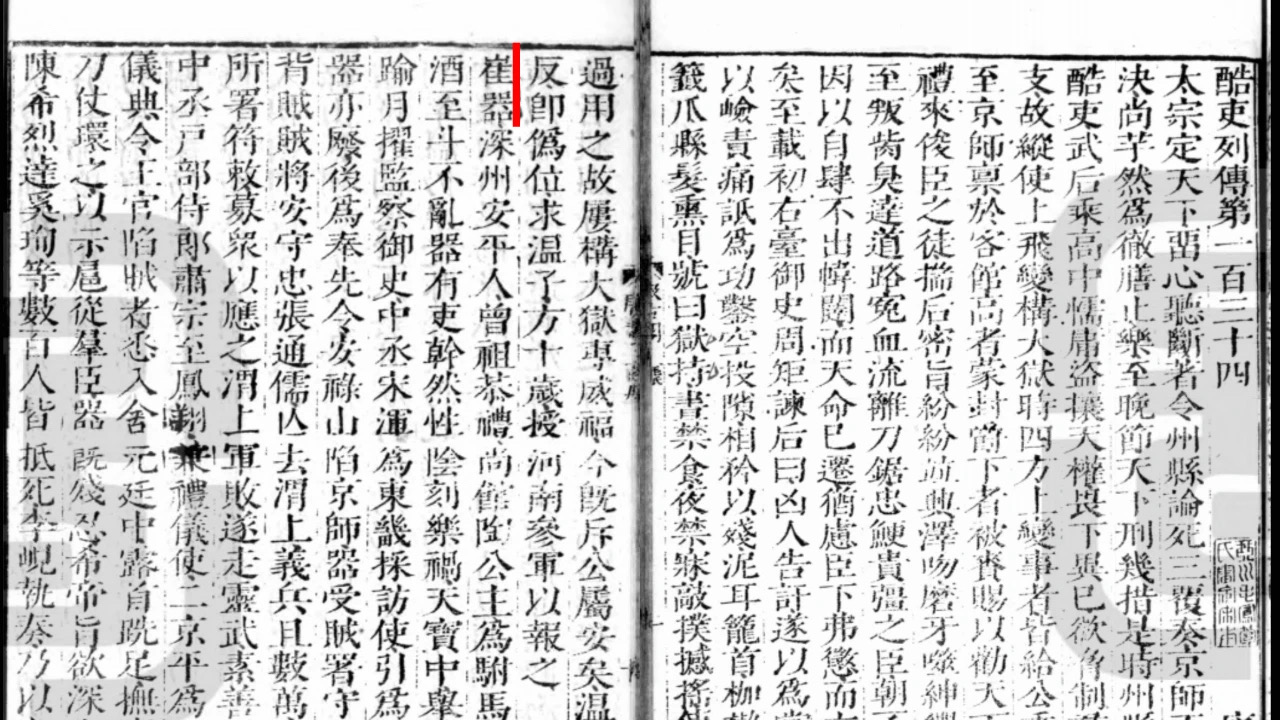 酷吏列傳第一百三十四
太宗定天下留心聽斷著令州縣論死三覆奏京師
決尚芋然爲徹膳止樂至晚節天下刑幾措是時州
酷吏武后乘高中懦庸盜攘天權畏下異己欲脅制
支故縱使上飛變構大獄時四方上變事者皆給公
至京師禀於客館高者蒙封爵下者被賚賜以勸天
禮來俊臣之徒揣后密旨紛紛並興澤吻磨牙噬紳
至叛臠臭達道路冤血流離刀鋸忠鯁貴彊之臣朝
因以自肆不出幃闥而天命已遷猶慮臣下弗懲而
矣至載初右臺御史周矩諫后曰凶人告訐遂以爲
以嶮責痛詆爲功鑿空投隙相矜以殘泥耳籠首枷
籤爪縣髮熏目號曰獄持晝禁食夜禁寐敲撲撼搖
過用之故屢構大獄專威福今旣斥公屬安矣温
反卽僞位求温子方十歲授河南參軍以報之
崔器深州安平人曾祖恭禮尚館陶公主爲駙馬
酒至斗不亂器有吏幹然性陰刻樂禍天寶中舉
踰月擢監察御史中丞宋渾爲東畿採訪使引爲
器亦廢後爲奉先令安祿山陷京師器受賊署守
背賊賊將安守忠張通儒亾去渭上義兵且數萬
所署符敕募衆以應之渭上軍敗遂走靈武素善
中丞戸部侍郎肅宗至鳳翔兼禮儀使二京平爲
儀典令王官陷賊者悉入舍元廷中露首跣足撫
刀仗環之以示扈從羣臣器旣殘忍希帝旨欲深
陳希烈達奚珣等數百人皆抵死李峴執奏乃以